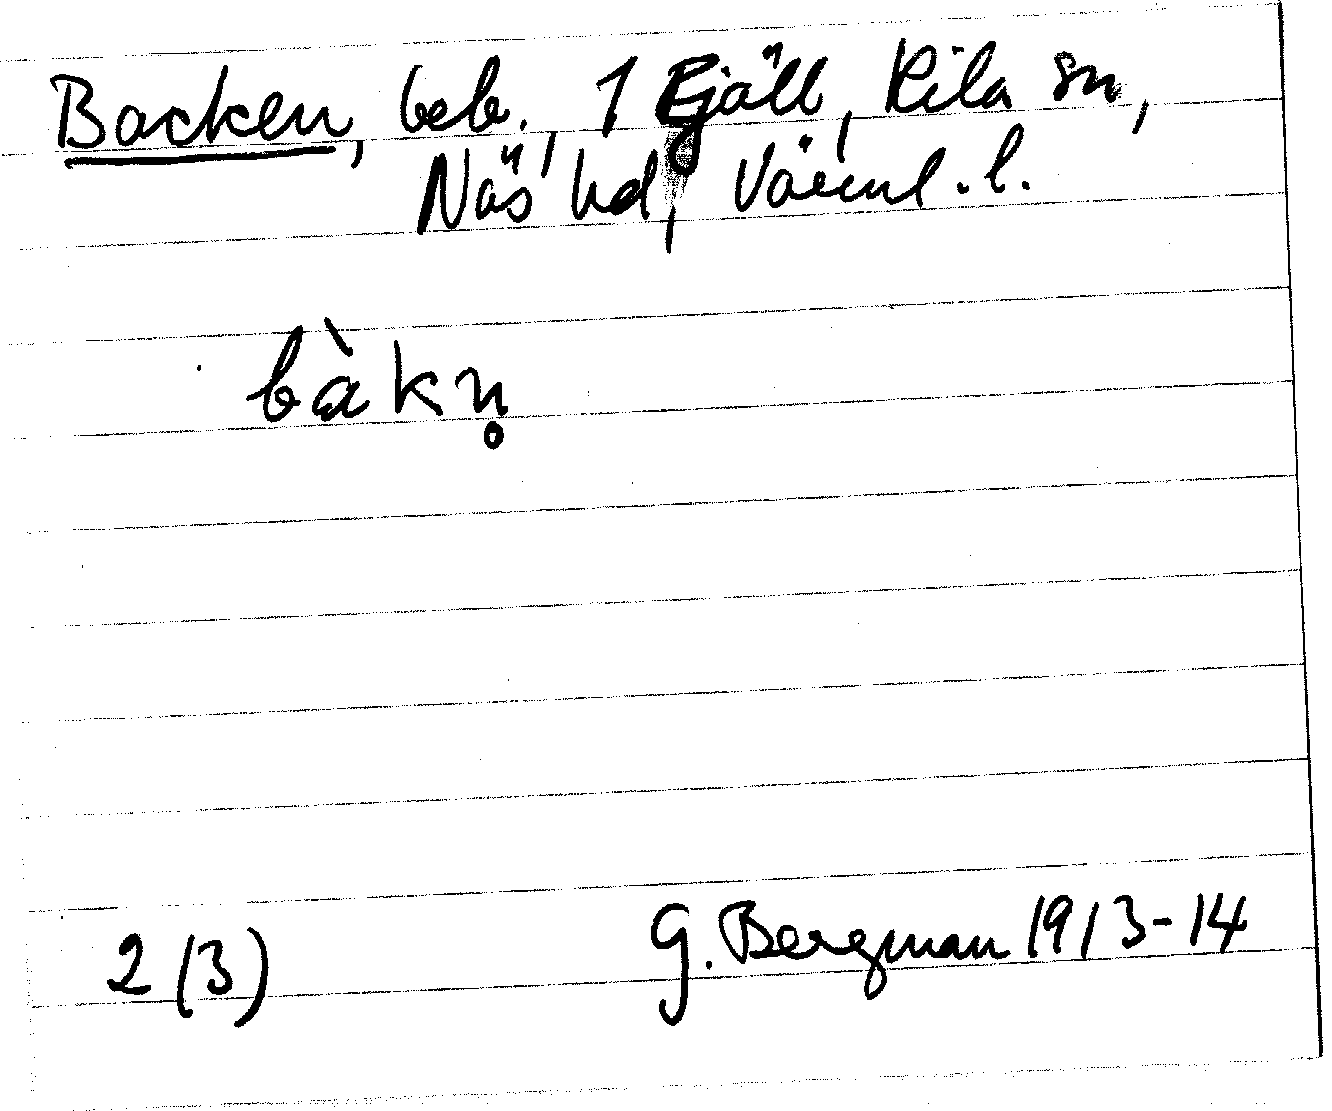 Backen, beb., 1 Fjäll, Kila sn,
Näs hd, Värml. l.
bàkn̥
2 (3) G. Bergman 1913-14